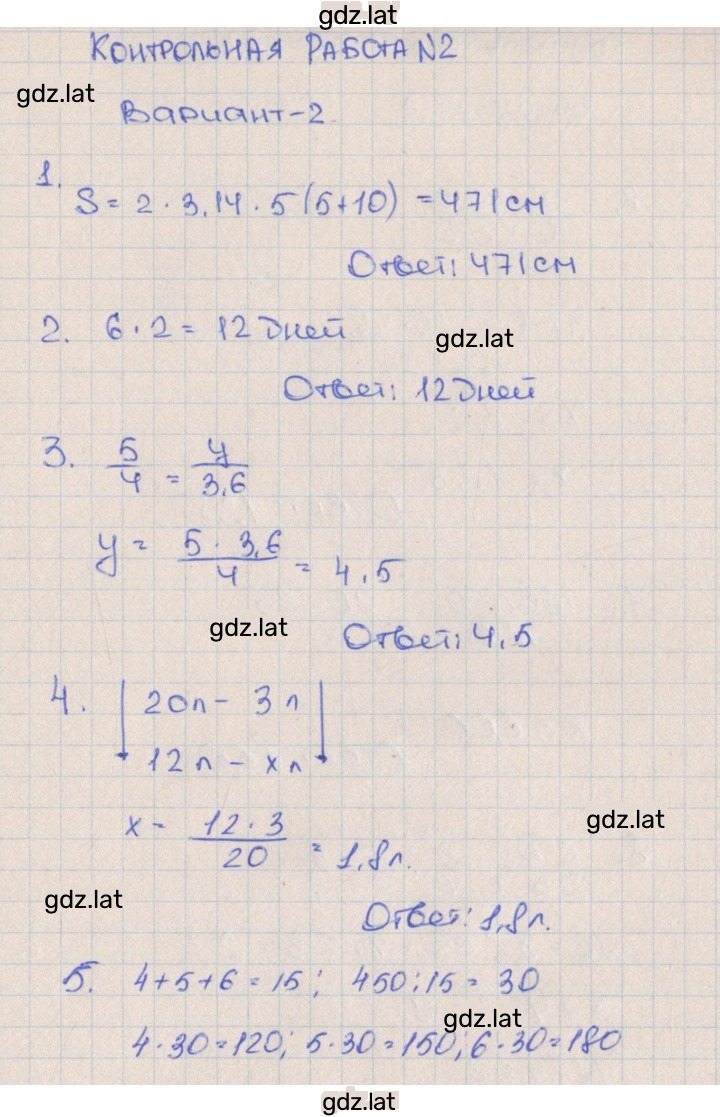 gdz.lat
КОНТРОЛЬНАЯ РАБОТА N2
gdz.lat
Вариант-2.
1.
S = 2 · 3,14 · 5 (5+10) = 471 см
Ответ: 471 см
2. 6 · 2 = 12 Дней
gdz.lat
Ответ: 12 Дней
3. 5/4 = y/3,6
y = 5 · 3,6 / 4 = 4,5
gdz.lat
Ответ: 4,5
4. 20л - 3 л
12 л - x л
x = 12 · 3 / 20 = 1,8 л.
gdz.lat
gdz.lat
Ответ: 1,8 л.
5. 4+5+6 = 15; 450:15 = 30
gdz.lat
4 · 30 = 120; 5 · 30 = 150; 6 · 30 = 180
gdz.lat